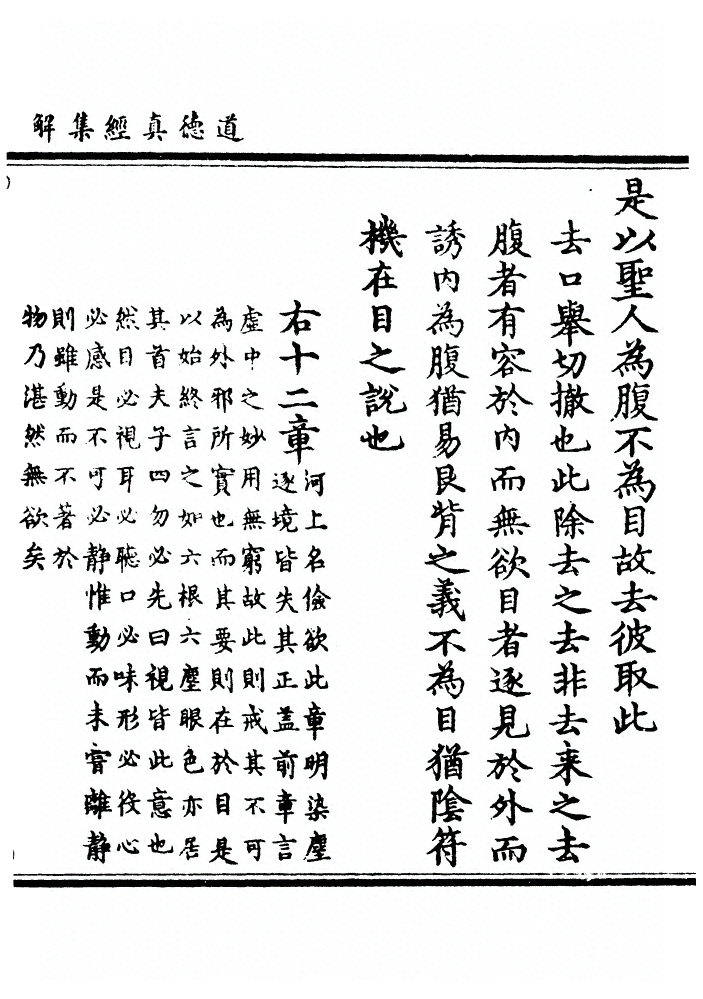 道德真經集解
是以聖人為腹不為目故去彼取此
去口舉切撤也此除去之去非去来之去
腹者有容於内而無欲目者逐見於外而
誘内為腹猶易艮背之義不為目猶陰符
機在目之說也
右十二章
河上名儉欲此章明染塵
逐境皆失其正盖前章言
虛中之妙用無窮故此則戒其不可
為外邪所實也而其要則在於目是
以始終言之如六根六塵眼色亦居
其首夫子四勿必先曰視皆此意也
然目必視耳必聽口必味形必役心
必感是不可必静惟動而未甞離静
則雖動而不著於
物乃湛然無欲矣